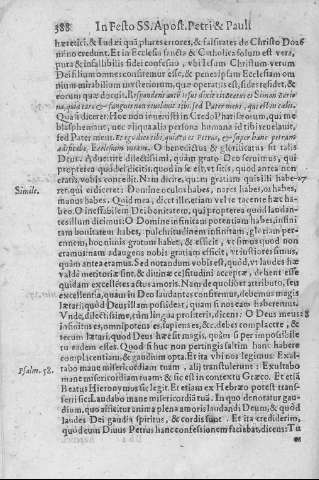 388 In Festo SS. Apost. Petri & Pauli
hæretici, & Iudæi quã plures errores, & falsitates de Christo Do 26
mino credunt. Et in Ecclesia sancta & Catholica solum est veri,
pura & infallibilis fidei confessio, vbi Iesum Christum verum
Dei filium omnes consitemur esse, & penes ipsam Ecclesiam om
nium mirabilium mysteriorum, quæ operatus est, fides residet, &
eorum quæ docuit. Respondens autem Iesus dixit: beatus es Simon Bario
na, quia caro & sanguis non reuelauit tibi, sed Pater meus, qui est in cælis.
Quasi diceret: Hoc non inuenisti in Credo Phatisæorum, qui me
blasphemant, nec aliqua alia persona humana id tibi reuelauit,
sed Pater meus. Et ego dico tibi, quia tu es Petrus, & super hanc petram
ædificabo Ecclesiam meam. O benedictus & glorificatus sit talis
Deus. Aduertite dilectissimi, quàm grato Deo seruimus, qui
propter ea quæ dei citis, quod in se est, vt sitis, quod antea non
eratis, vobis concedit. Nam dicite, quam gratiam quis illi habe- 27
Simile. ret, qui ei diceret: Domine oculos habes, nares habes, os habes,
manus habes. Quid mea, dicet ille, etiam vel te tacente hæc ha-
beo. O ineffabilem Dei bonitatem, qui propterea quod laudan-
tes illum dicimus: O Domine infinitam potentiam habes, infini
tam bonitatem habes, pulchritudinem infinitam, gloriam per-
ennem, hoc nimis gratum habet, & efficit, vt simus quod non
eramus: nam ad augens nobis gratiam efficit, vt iustiores simus,
quàm antea eramus. Sed notandum vobis est, quòd, vt laudes hæ
valdè meritoriæ sint, & diuinæ celsitudini acceptæ, debent esse
quidam excessiuus actus amoris. Nam de quolibet attributo, seu
excellentia, quam in Deo laudantes confitemur, debemus magis
lætari, quòd Deus, illam possideat, quam si nos eam haberemus.
Vnde, dilectissime, cùm lingua profiteris, dicens: O Deus meus 28
infinitus es, omnipotens es, sapiens es, &c. debes complectre, &
tecum lætari, quod Deus hæc sit magis, quàm si per impossibile
tu eadem esses. Quod si huc non pertingis, saltim hanc habere
complacentiam, & gaudium opta. Et ita vbi nos legimus: Exal-
tabo manè misericordiam tuam, alij transtulerunt: Exultabo
Psalm. 58. mane misericordiam tuam: & sic est in contextu Græco. Et etsi
Beatus Hieronymus sic legit. Et etiam ex Hebræo potest trans-
ferri sic: Laudabo mane misericordiã tuã. In quo denotatur gau-
dium, quo afficitur anima plena amoris laudandi Deum, & quòd
laudes Dei gaudia spiritus, & cordis sunt. Et ita crediderim,
quòd cum Diuus Petrus hanc confessionem faciebat, dicens: Tu
es